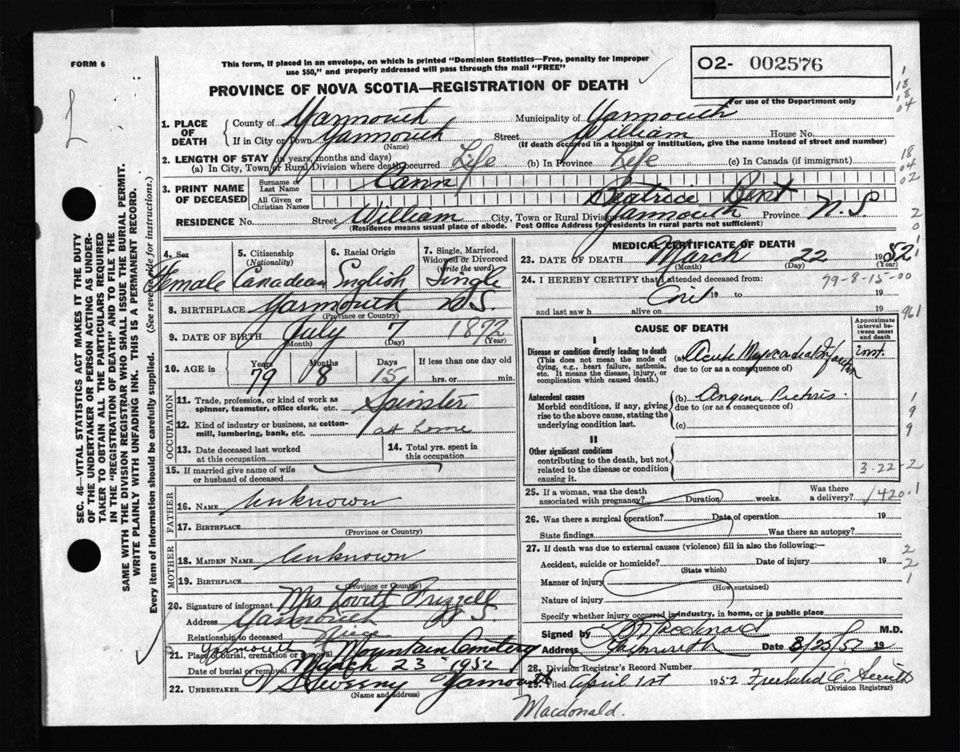 FORM 6
This form, if placed in an envelope, on which is printed "Dominion Statistics—Free, penalty for improper
use $50," and properly addressed will pass through the mail "FREE"
O2- 002576
For use of the Department only
PROVINCE OF NOVA SCOTIA—REGISTRATION OF DEATH
1. PLACE OF DEATH
County of Yarmouth Municipality of Yarmouth
If in City or Town Yarmouth Street William House No.
(Name) (If death occurred in a hospital or institution, give the name instead of street and number)
2. LENGTH OF STAY (in years, months and days)
(a) In City, Town or Rural Division where death occurred Life (b) In Province Life (c) In Canada (if immigrant)
3. PRINT NAME OF DECEASED
Surname or Last Name Cann
All Given or Christian Names Beatrice Bent
RESIDENCE No. Street William City, Town or Rural Division Yarmouth Province N.S.
(Residence means usual place of abode. Post Office Address for residents in rural parts not sufficient)
4. Sex Female
5. Citizenship (Nationality) Canadian
6. Racial Origin English
7. Single, Married, Widowed or Divorced (write the word) Single
8. BIRTHPLACE Yarmouth N.S.
(Province or Country)
9. DATE OF BIRTH July 7 1872
(Month) (Day) (Year)
10. AGE in Years 79 Months 8 Days 15 If less than one day old
hrs. or min.
OCCUPATION
11. Trade, profession, or kind of work as
spinner, teamster, office clerk, etc. Spinster
12. Kind of industry or business, as cotton-
mill, lumbering, bank, etc. at home
13. Date deceased last worked
at this occupation
14. Total yrs. spent in
this occupation
15. If married give name of wife
or husband of deceased
FATHER
16. NAME Unknown
17. BIRTHPLACE
(Province or Country)
MOTHER
18. MAIDEN NAME Unknown
19. BIRTHPLACE
(Province or Country)
20. Signature of informant Mrs Lovitt Frizzell
Address Yarmouth N.S.
Relationship to deceased
21. Place of burial, cremation or removal Yarmouth Mountain Cemetery
Date of burial or removal March 23 1952
22. UNDERTAKER V S Sweeny Yarmouth
(Name and address)
MEDICAL CERTIFICATE OF DEATH
23. DATE OF DEATH March 22 1952
(Month) (Day) (Year)
24. I HEREBY CERTIFY that I attended deceased from:
79-8-15-00
19 to 19
and last saw h alive on 19
CAUSE OF DEATH
Approximate interval between onset and death
I
Disease or condition directly leading to death
(This does not mean the mode of
dying, e.g., heart failure, asthenia,
etc. It means the disease, injury, or
complication which caused death.)
(a) Acute Myocardial Infarction inst.
due to (or as a consequence of)
Antecedent causes
Morbid conditions, if any, giving
rise to the above cause, stating the
underlying condition last.
(b) Angina Pectoris.
due to (or as a consequence of)
(c)
II
Other significant conditions
contributing to the death, but not
related to the disease or condition
causing it.
3-22-2
25. If a woman, was the death
associated with pregnancy? Duration weeks. Was there
a delivery? 420.1
26. Was there a surgical operation? Date of operation 19
State findings Was there an autopsy?
27. If death was due to external causes (violence) fill in also the following:—
Accident, suicide or homicide? Date of injury 19
(State which)
Manner of injury
(How sustained)
Nature of injury
Specify whether injury occurred in industry, in home, or in public place
Signed by M.D.
Address Yarmouth Date 3/25/52 19
28. Division Registrar's Record Number
29. Filed April 1st 1952
(Division Registrar)
Macdonald.
SEC. 46—VITAL STATISTICS ACT MAKES IT THE DUTY
OF THE UNDERTAKER OR PERSON ACTING AS UNDER-
TAKER TO OBTAIN ALL THE PARTICULARS REQUIRED
IN THE "REGISTRATION OF DEATH" AND TO FILE THE
SAME WITH THE DIVISION REGISTRAR WHO SHALL ISSUE THE BURIAL PERMIT.
WRITE PLAINLY WITH UNFADING INK. THIS IS A PERMANENT RECORD.
Every item of information should be carefully supplied. (See reverse side for instructions.)